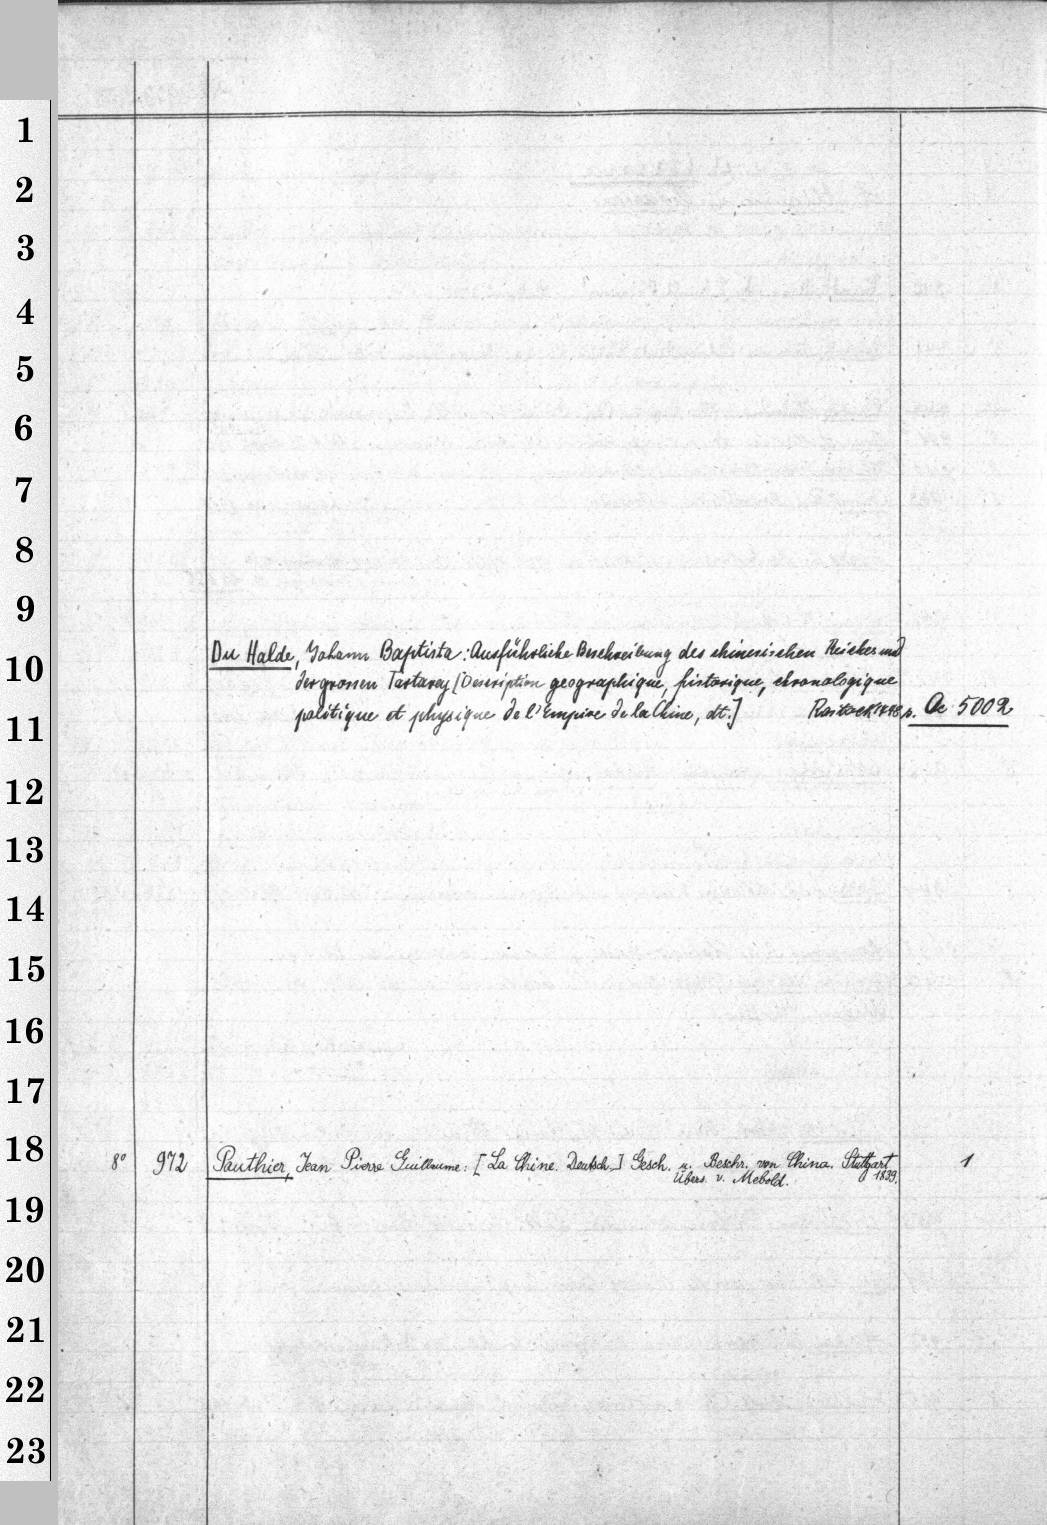 1
2
3
4
5
6
7
8
9
10
11
12
13
14
15
16
17
18
19
20
21
22
23
Du Halde, Johann Baptista: Ausführliche Beschreibung des chinesischen Reiches und
der grossen Tartarey [Description geographique, historique, chronologique
politique et physique de l'Empire de la Chine, dt.] Rostock s. Qe 5002
8° 972 Pauthier, Jean Pierre Guillaume: [La Chine. Deutsch.] Gesch. u. Beschr. von China. Stuttgart 1
Übers. v. Mebold. 1839.